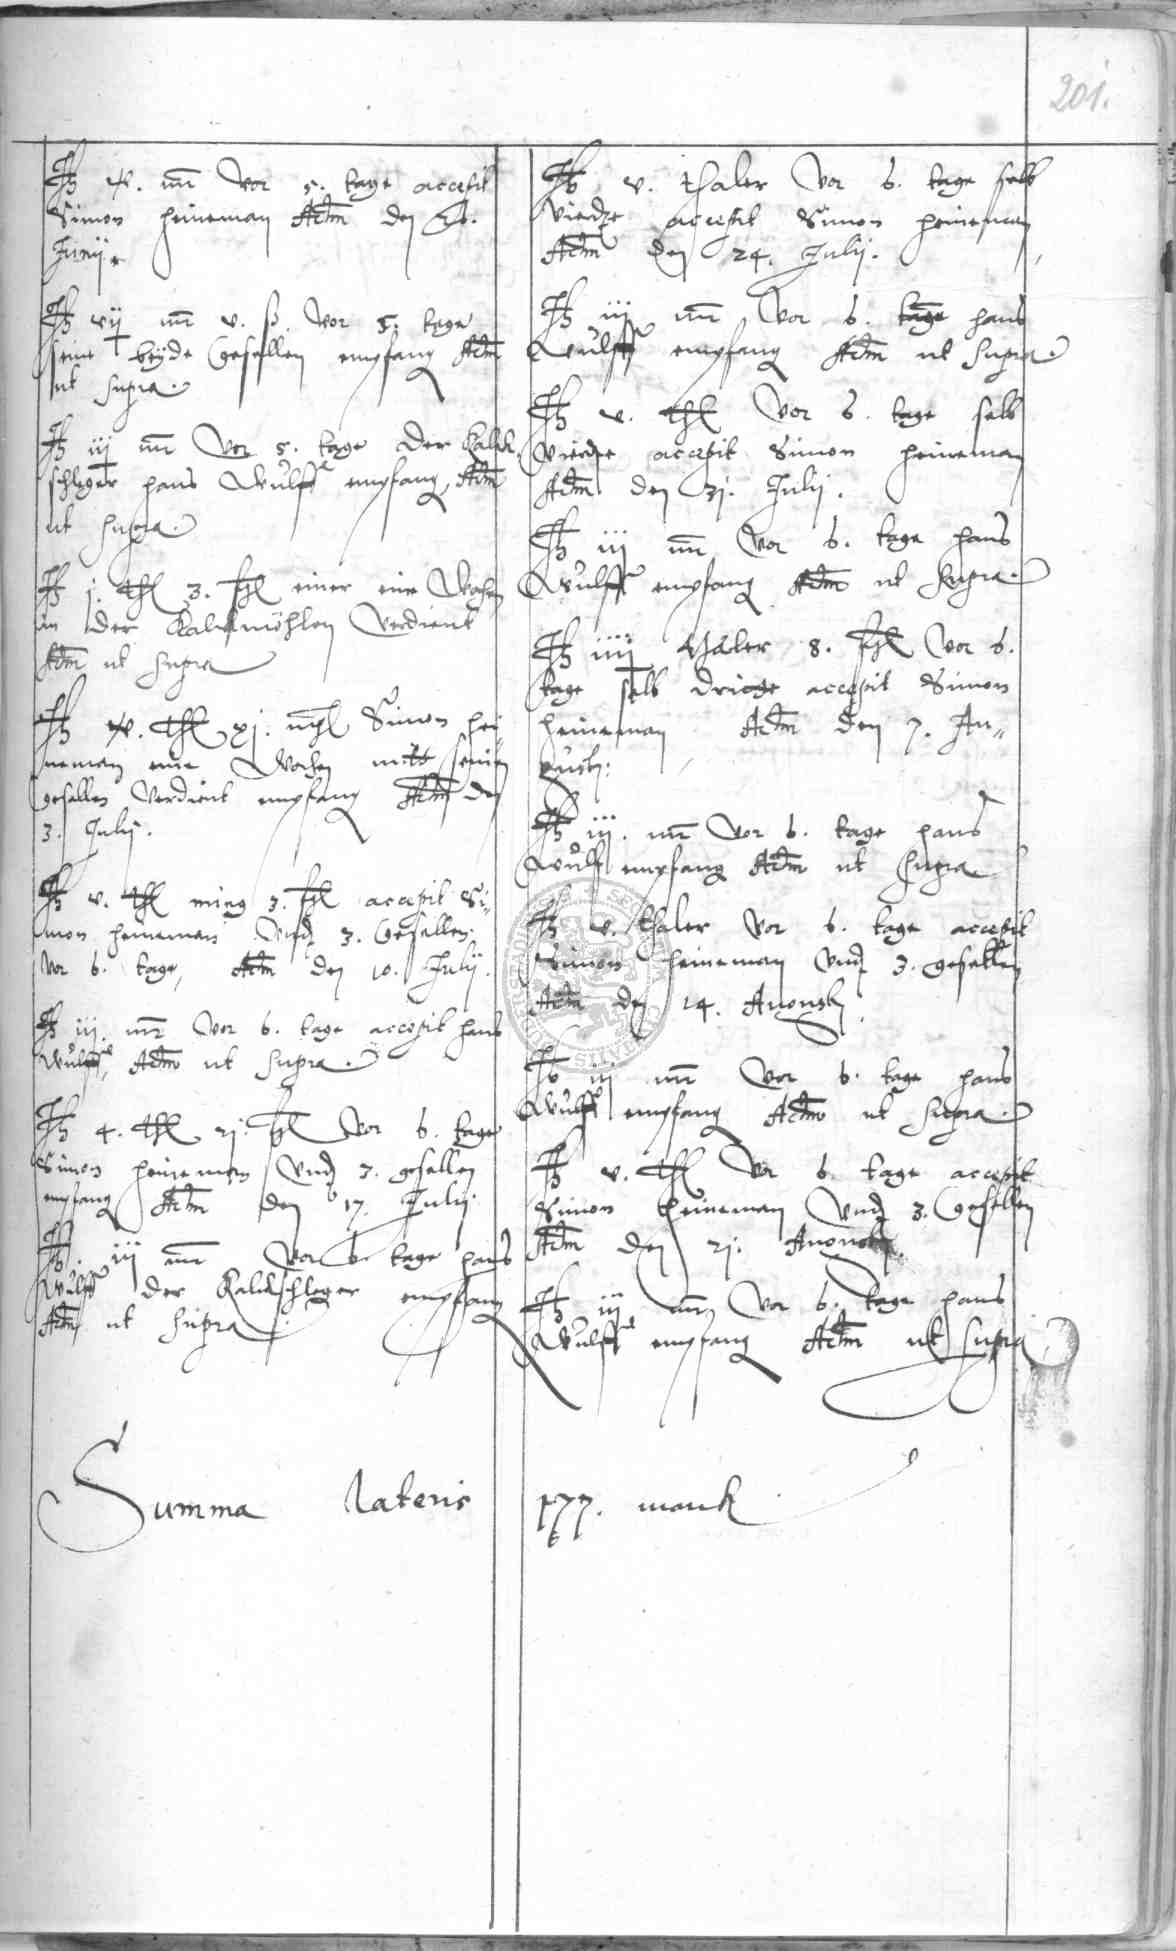 201.
It iiii mr vor 5. tage accepit
Simon heineman Actum den 26.
Junij.
It vij mr v. ß. vor 5. tage
seine beyde Gesellen empfang Actum
ut supra.
It iij mr vor 5. tage der Kalck
schleger hans Wulff empfang, Actum
ut supra.
It j. thl 3. ßl einer eine Wochen
in der Kalckmöhlen verdient
Actum ut supra
It thl xj. Simon hei
neman eine Wochen mitt seinen
gesellen verdient empfang Actum den
3. Julij.
It v. thl 3. ßl accepit Si
mon heineman vnd 3. Gesellen
vor 6. tage, Actum den 10. Julij.
It iij mr vor 6. tage accepit hans
Wulff, Actum ut supra.
It 4. thl 21. ßl vor 6. tage
Simon heineman vnd 3. gesellen
empfang Actum den 17. Julij
It iij mr vor 6. tage hans
Wulff der Kalckschleger empfang
Actum ut supra
It v. thaler vor 6. tage selb
vierdte accepit Simon heineman
Actum den 24. Julij.
It iij mr vor 6. tage hans
Wulff empfang Actum ut supra.
It v. thl vor 6. tage selb
vierdte accepit Simon heineman
Actum den 31. Julij.
It iij mr vor 6. tage hans
Wulff empfang Actum ut supra.
It iiij thaler 8. ßl vor 6.
tage selb dridte accepit Simon
heineman Actum den 7. Au
gusti.
It iij. mr vor 6. tage hans
Wulff empfang Actum ut supra
It v. thaler vor 6. tage accepit
Simon heineman vnd 3. gesellen
Actum den 14. Augusti
It iij mr vor 6. tage hans
Wulff empfang Actum ut supra.
It v. thl vor 6. tage accepit
Simon heineman vnd 3. Gesellen
Actum den 21. Augusti.
It iij mr vor 6. tage hans
Wulff empfang Actum ut supra
Summa lateris 177. marck